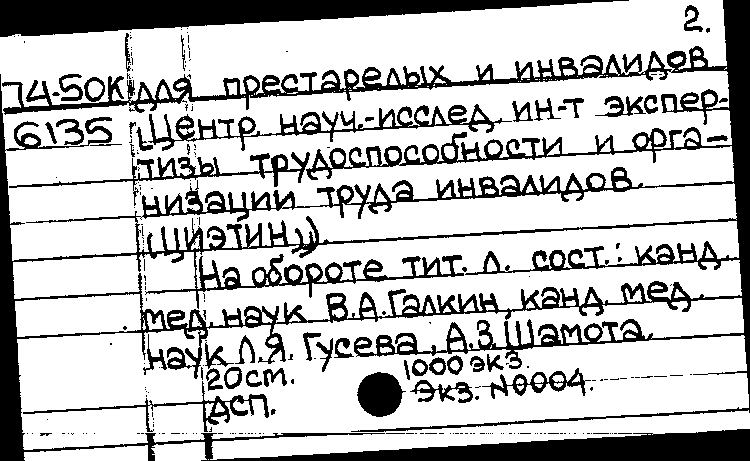 2.
74-50К для престарелых и инвалидов
6135 (Центр. науч.-исслед. ин-т экспер-
тизы трудоспособности и орга-
низации труда инвалидов.
(ЦИЭТИН)).
На обороте тит. л. сост.: канд.
мед. наук В.А.Галкин, канд. мед.
наук Л.Я. Гусева, А.З. Шамота.
20см. 1000 экз.
ДСП. Экз. №0004.